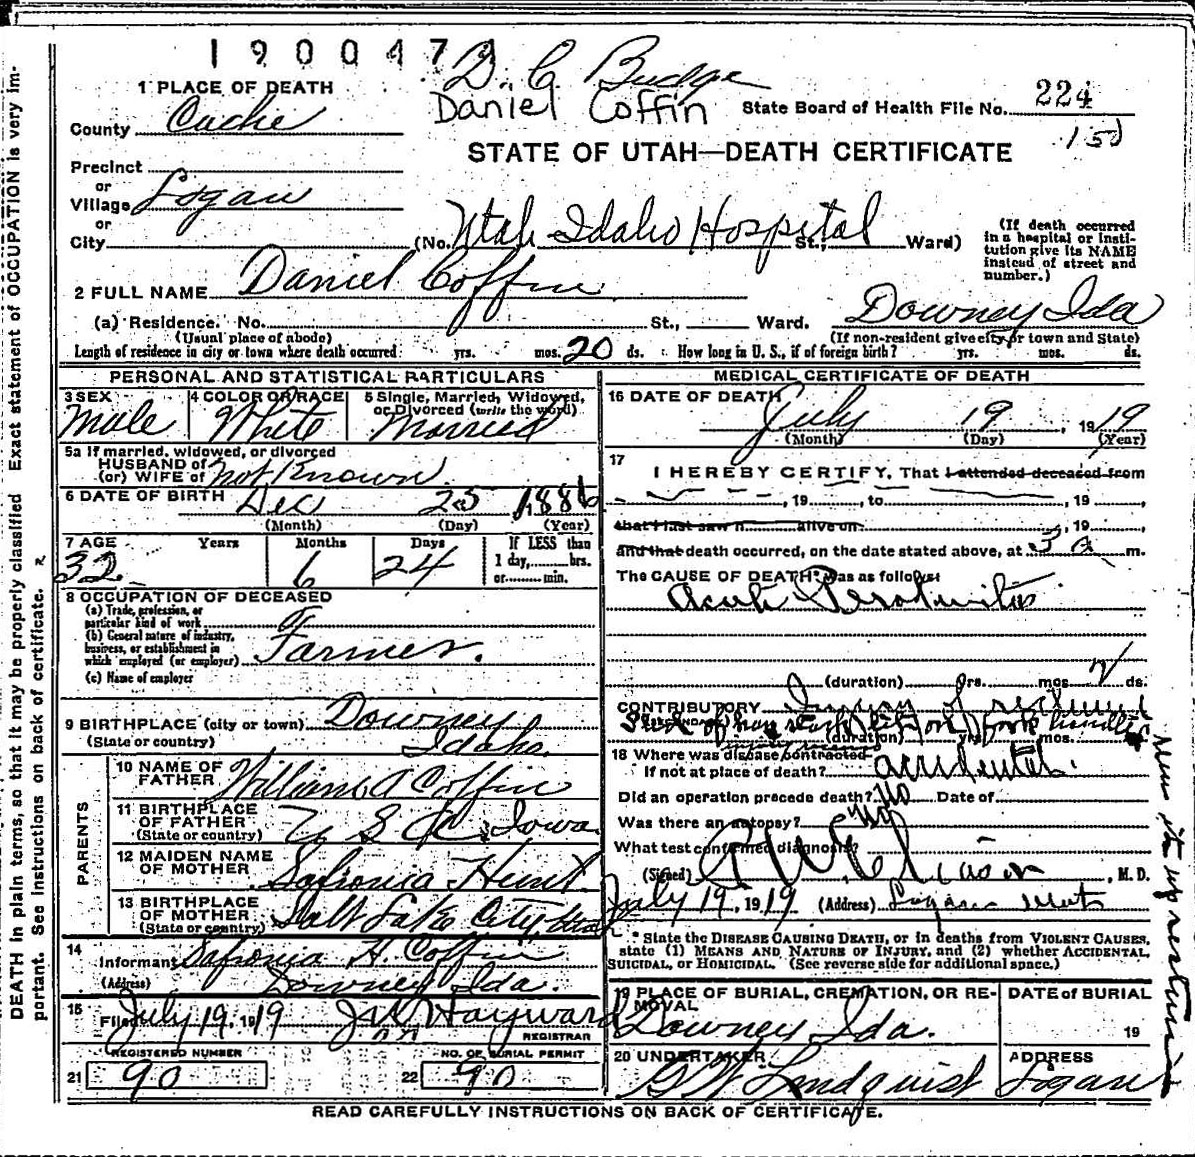 190047
D. C. Budge
Daniel Coffin
1 PLACE OF DEATH
State Board of Health File No. 224
County Cache
STATE OF UTAH—DEATH CERTIFICATE
Precinct
or
Village Logan
or
City
(No. Utah Idaho Hospital St., Ward)
(If death occurred in a hospital or institution give its NAME instead of street and number.)
2 FULL NAME Daniel Coffin
(a) Residence. No. St., Ward. Downey Ida
(Usual place of abode)
(If non-resident give city or town and State)
Length of residence in city or town where death occurred yrs. mos. 20 ds. How long in U. S., if of foreign birth? yrs. mos. ds.
PERSONAL AND STATISTICAL PARTICULARS
3 SEX Male
4 COLOR OR RACE White
5 Single, Married, Widowed, or Divorced (write the word) Married
5a If married, widowed, or divorced
HUSBAND of
(or) WIFE of Not Known
6 DATE OF BIRTH Dec 25 1886
(Month) (Day) (Year)
7 AGE Years Months Days If LESS than 1 day, hrs. or min.
32 6 24
8 OCCUPATION OF DECEASED
(a) Trade, profession, or particular kind of work
(b) General nature of industry, business, or establishment in which employed (or employer)
Farmer.
(c) Name of employer
9 BIRTHPLACE (city or town) Downey
(State or country) Idaho.
PARENTS
10 NAME OF FATHER William A Coffin
11 BIRTHPLACE OF FATHER (State or country) Iowa
12 MAIDEN NAME OF MOTHER Safronia Hunt.
13 BIRTHPLACE OF MOTHER (State or country) Salt Lake City, Utah
14 Informant Safronia H. Coffin
(Address) Downey Ida.
15 Filed July 19, 1919 Hayward
REGISTRAR
REGISTERED NUMBER
21 90
NO. OF BURIAL PERMIT
22 90
MEDICAL CERTIFICATE OF DEATH
16 DATE OF DEATH July 19 1919
(Month) (Day) (Year)
17
I HEREBY CERTIFY, That I attended deceased from
, 19 , to , 19 ,
that I last saw h alive on , 19 ,
and that death occurred, on the date stated above, at 3 a m.
The CAUSE OF DEATH* was as follows:
Acute Peritonitis
(duration) yrs. mos. 2 ds.
CONTRIBUTORY Injury of
(duration) yrs. mos.
18 Where was disease contracted
if not at place of death? accidental.
Did an operation precede death? No Date of
Was there an autopsy? No
What test confirmed diagnosis?
(Signed) , M. D.
July 19, 1919 (Address) Logan Utah
* State the DISEASE CAUSING DEATH, or in deaths from VIOLENT CAUSES, state (1) MEANS AND NATURE OF INJURY, and (2) whether ACCIDENTAL, SUICIDAL, or HOMICIDAL. (See reverse side for additional space.)
19 PLACE OF BURIAL, CREMATION, OR REMOVAL Downey Ida.
DATE of BURIAL 19
20 UNDERTAKER Lindquist
ADDRESS Logan
READ CAREFULLY INSTRUCTIONS ON BACK OF CERTIFICATE.
DEATH in plain terms, so that it may be properly classified Exact statement of OCCUPATION is very important. See instructions on back of certificate.